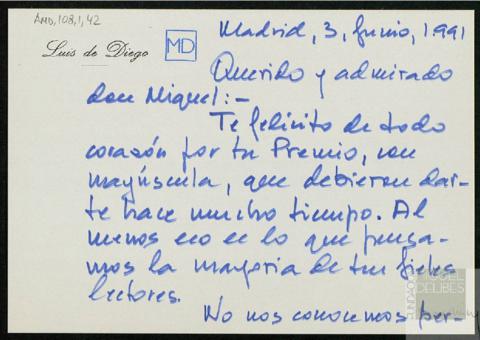 AMD, 108, 1, 42
Luis de Diego
MD
Madrid, 3, Junio, 1991
Querido y admirado
don Miguel:-
Te felicito de todo
corazón por tu Premio, con
mayúscula, que debieron dar-
te hace mucho tiempo. Al
menos eso es lo que pensa-
mos la mayoría de tus fieles
lectores.
No nos conocemos per-
FUNDACIÓN
MIGUEL
DELIBES